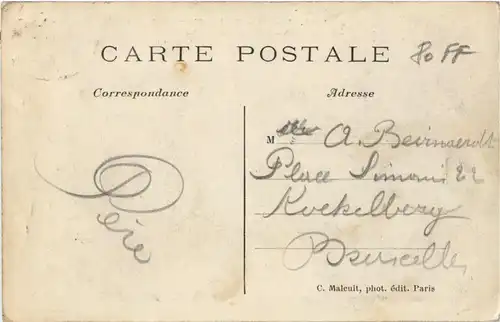 CARTE POSTALE
80 FF
Correspondance
Adresse
M A. Beirnaerdt
Place Simonis 22
Koekelberg
Bruxelles
Père
C. Malcuit, phot. édit. Paris